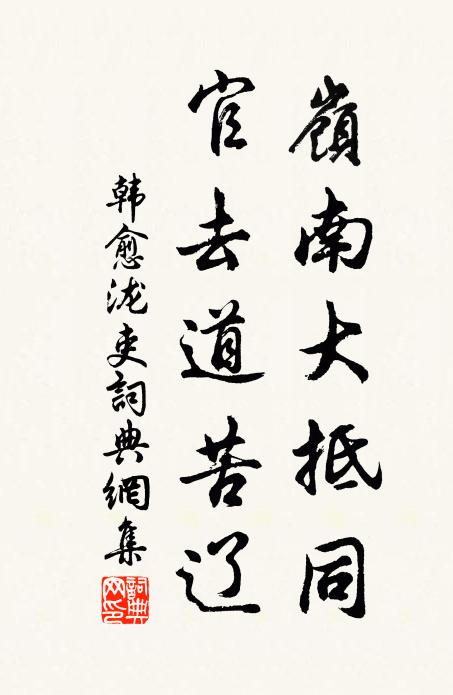 嶺南大抵同
官去道苦辽
韩愈泷吏詞典網集
詞典网印